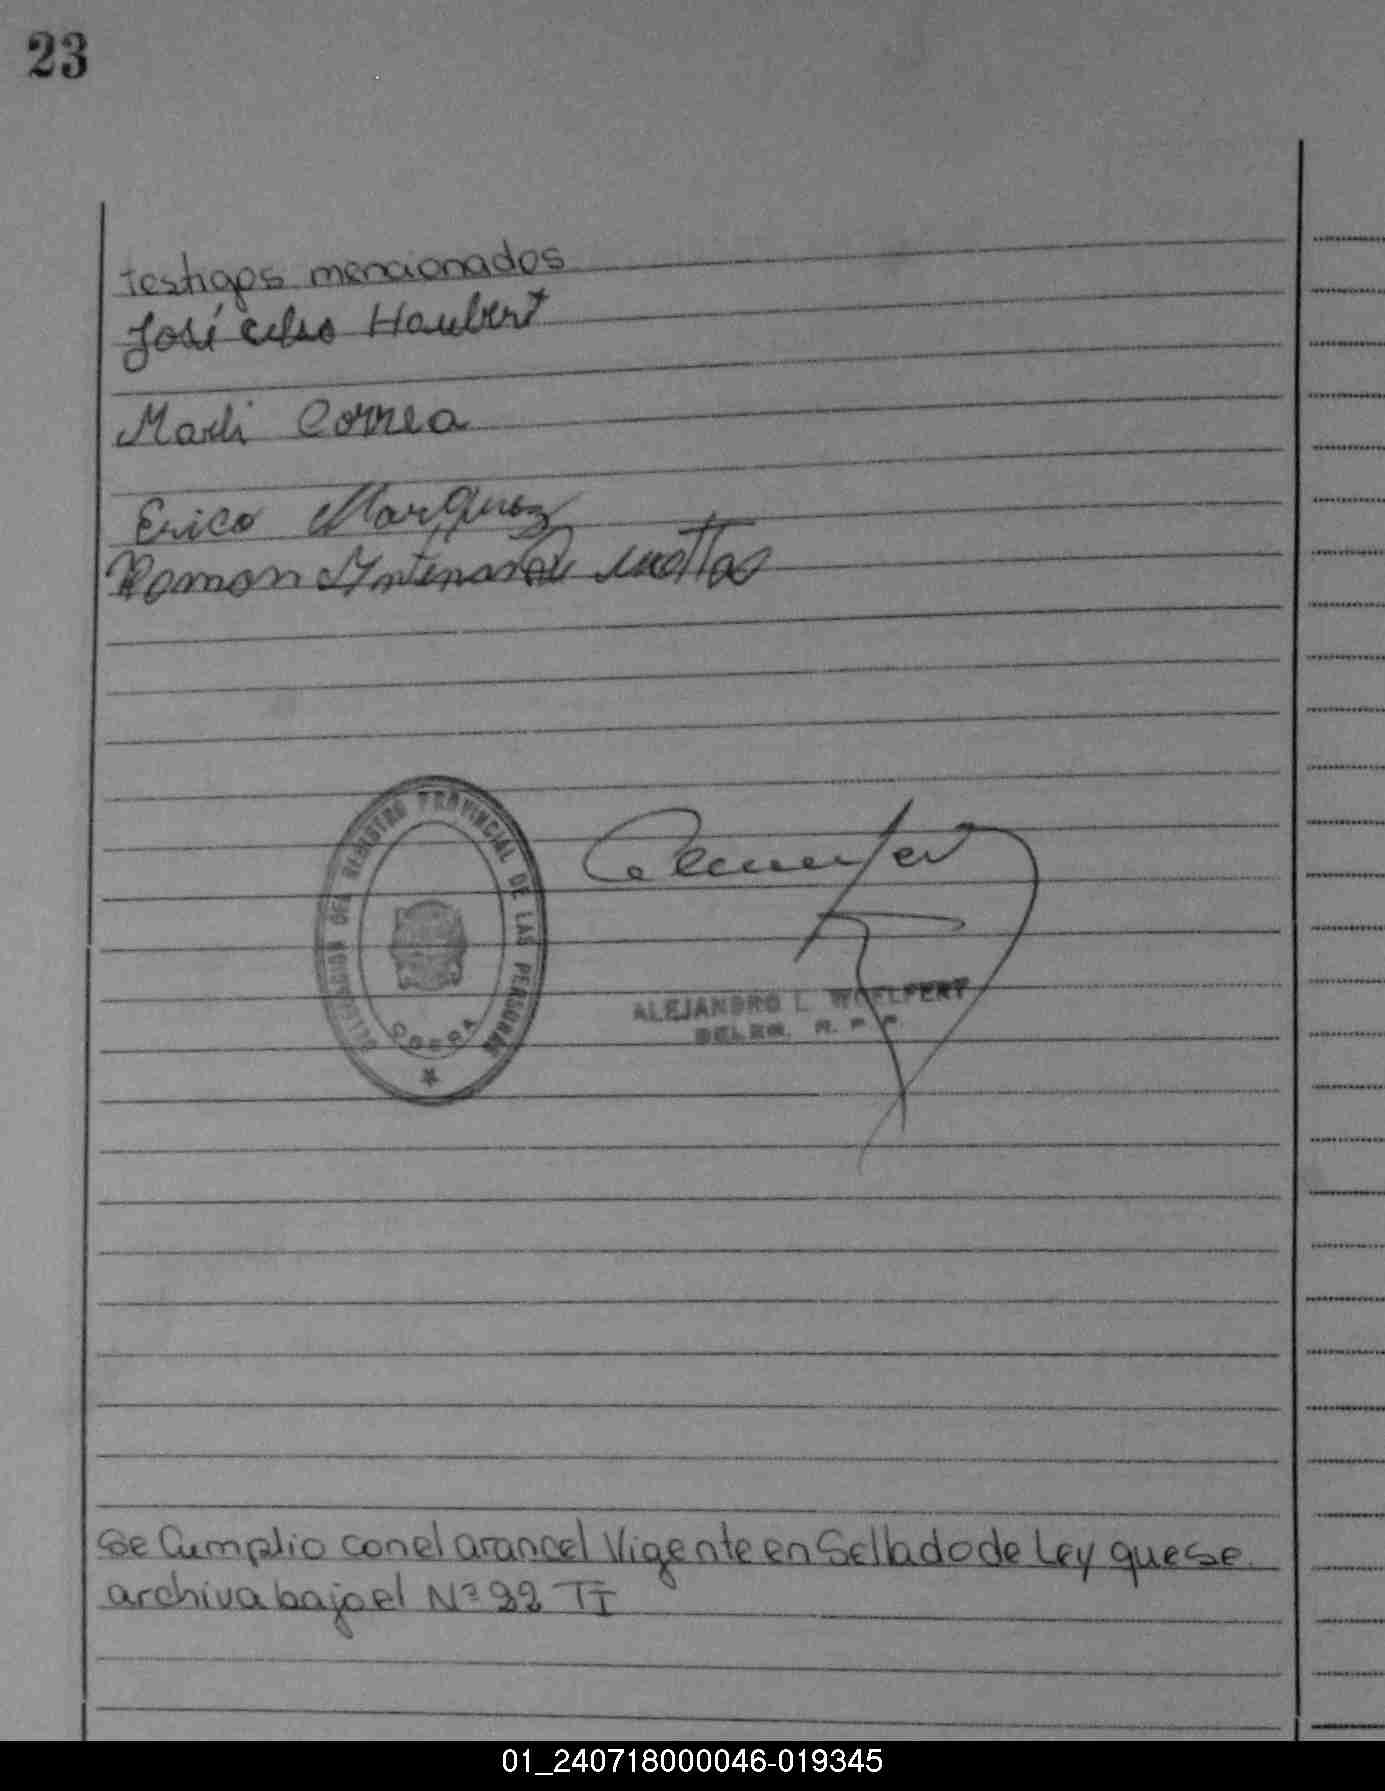 23
testigos mencionados
José Celso Haubert
Marli Correa
Erico Marquez
Ramon
DELEGACION DEL REGISTRO PROVINCIAL DE LAS PERSONAS
ALEJANDRO L. WOELFERT
DELEG. R. P. P.
Se Cumplio con el arancel Vigente en Sellado de Ley que se
archiva bajo el Nº 22 TI
01_240718000046-019345